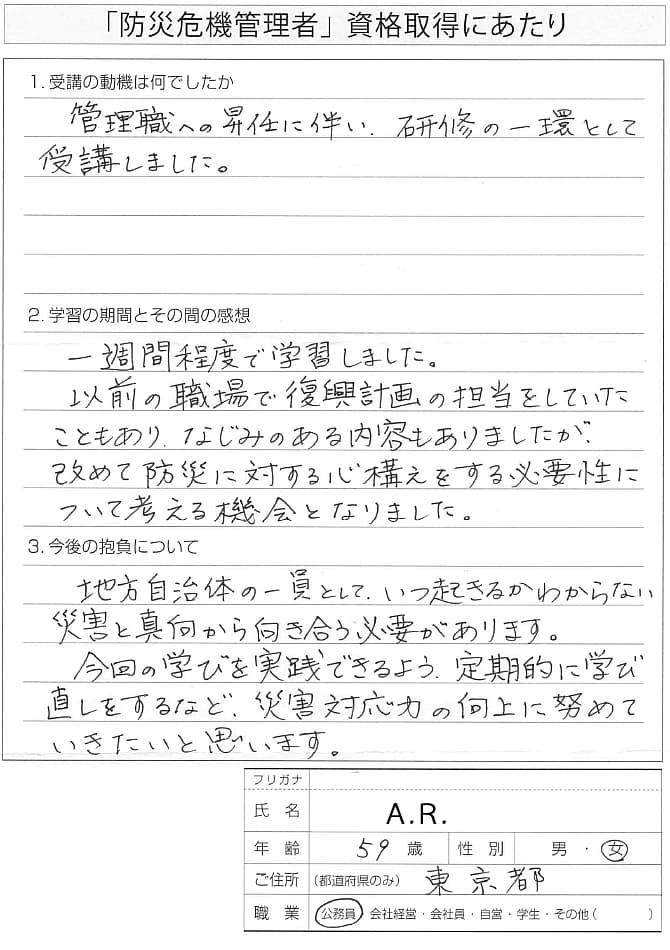 「防災危機管理者」資格取得にあたり
1. 受講の動機は何でしたか
管理職への昇任に伴い、研修の一環として
受講しました。
2. 学習の期間とその間の感想
一週間程度で学習しました。
以前の職場で復興計画の担当をしていた
こともあり、なじみのある内容もありましたが、
改めて防災に対する心構えをする必要性に
ついて考える機会となりました。
3. 今後の抱負について
地方自治体の一員として、いつ起きるかわからない
災害と真向から向き合う必要があります。
今回の学びを実践できるよう、定期的に学び
直しをするなど、災害対応力の向上に努めて
いきたいと思います。
フリガナ
氏名 A.R.
年齢 59 歳 性別 男・女
ご住所 (都道府県のみ) 東京都
職業 公務員 会社経営・会社員・自営・学生・その他( )